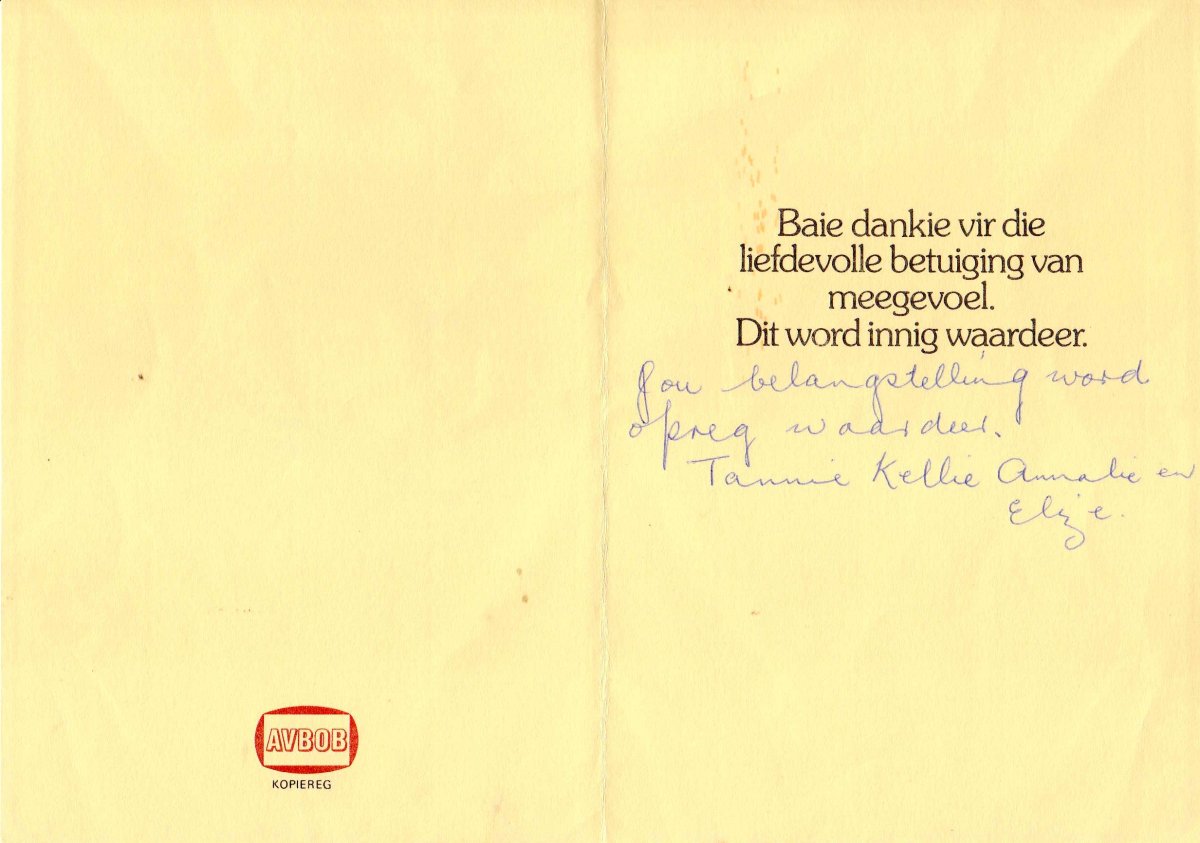 AVBOB
KOPIEREG
Baie dankie vir die
liefdevolle betuiging van
meegevoel.
Dit word innig waardeer.
Jou belangstelling word
opreg waardeer.
Tannie Kellie Annalie en
Elize.